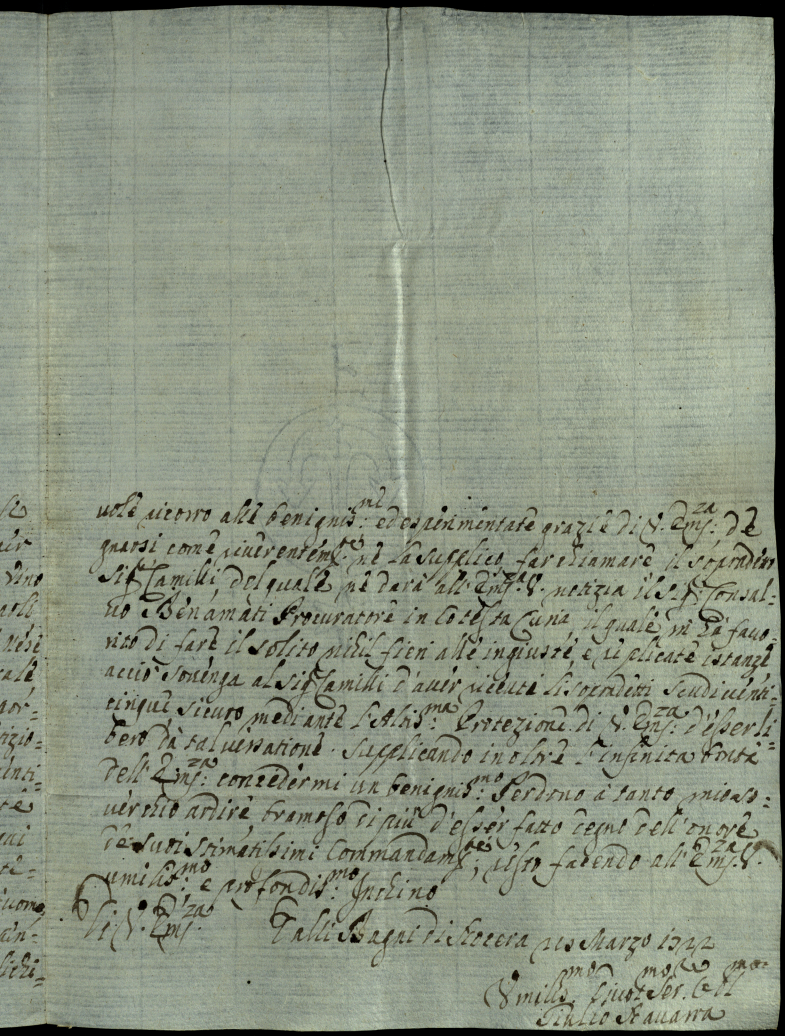 uole ricorro alle benignis:me ed esperimentate grazie di V. Em:za de
gnarsi come riverentemte ne la supplico, far chiamare il sopradetto
Sigr Camilli del quale ne darà all'Emza V. notizia il Sigr Consal-
uo Benamati Procuratore in cotesta Curia il quale m'ha fauo-
rito di fare il solito nihil fieri alle ingiuste, e replicate istanze
acciò souenga al Sigr Camilli d'auer riceuti li sopradetti scudi uenti-
cinque sicuro mediante l'Altis:ma Protezione di V. Em:za d'esser li-
bero da tal uessatione. Supplicando inoltre l'infinita bontà
dell'Em:za concedermi un benignis:mo Perdono à tanto mio so-
uerchio ardire bramoso di più d'esser fatto degno dell'onore
de suoi stimatissimi Commandamti, resto facendo all'Emza V.
umilis:mo e profondis:mo Inchino
Di V. Em:za Dalli Bagni di Nocera Marzo
Umilis.mo Diuot.mo Ser.
Giulio Nauarra